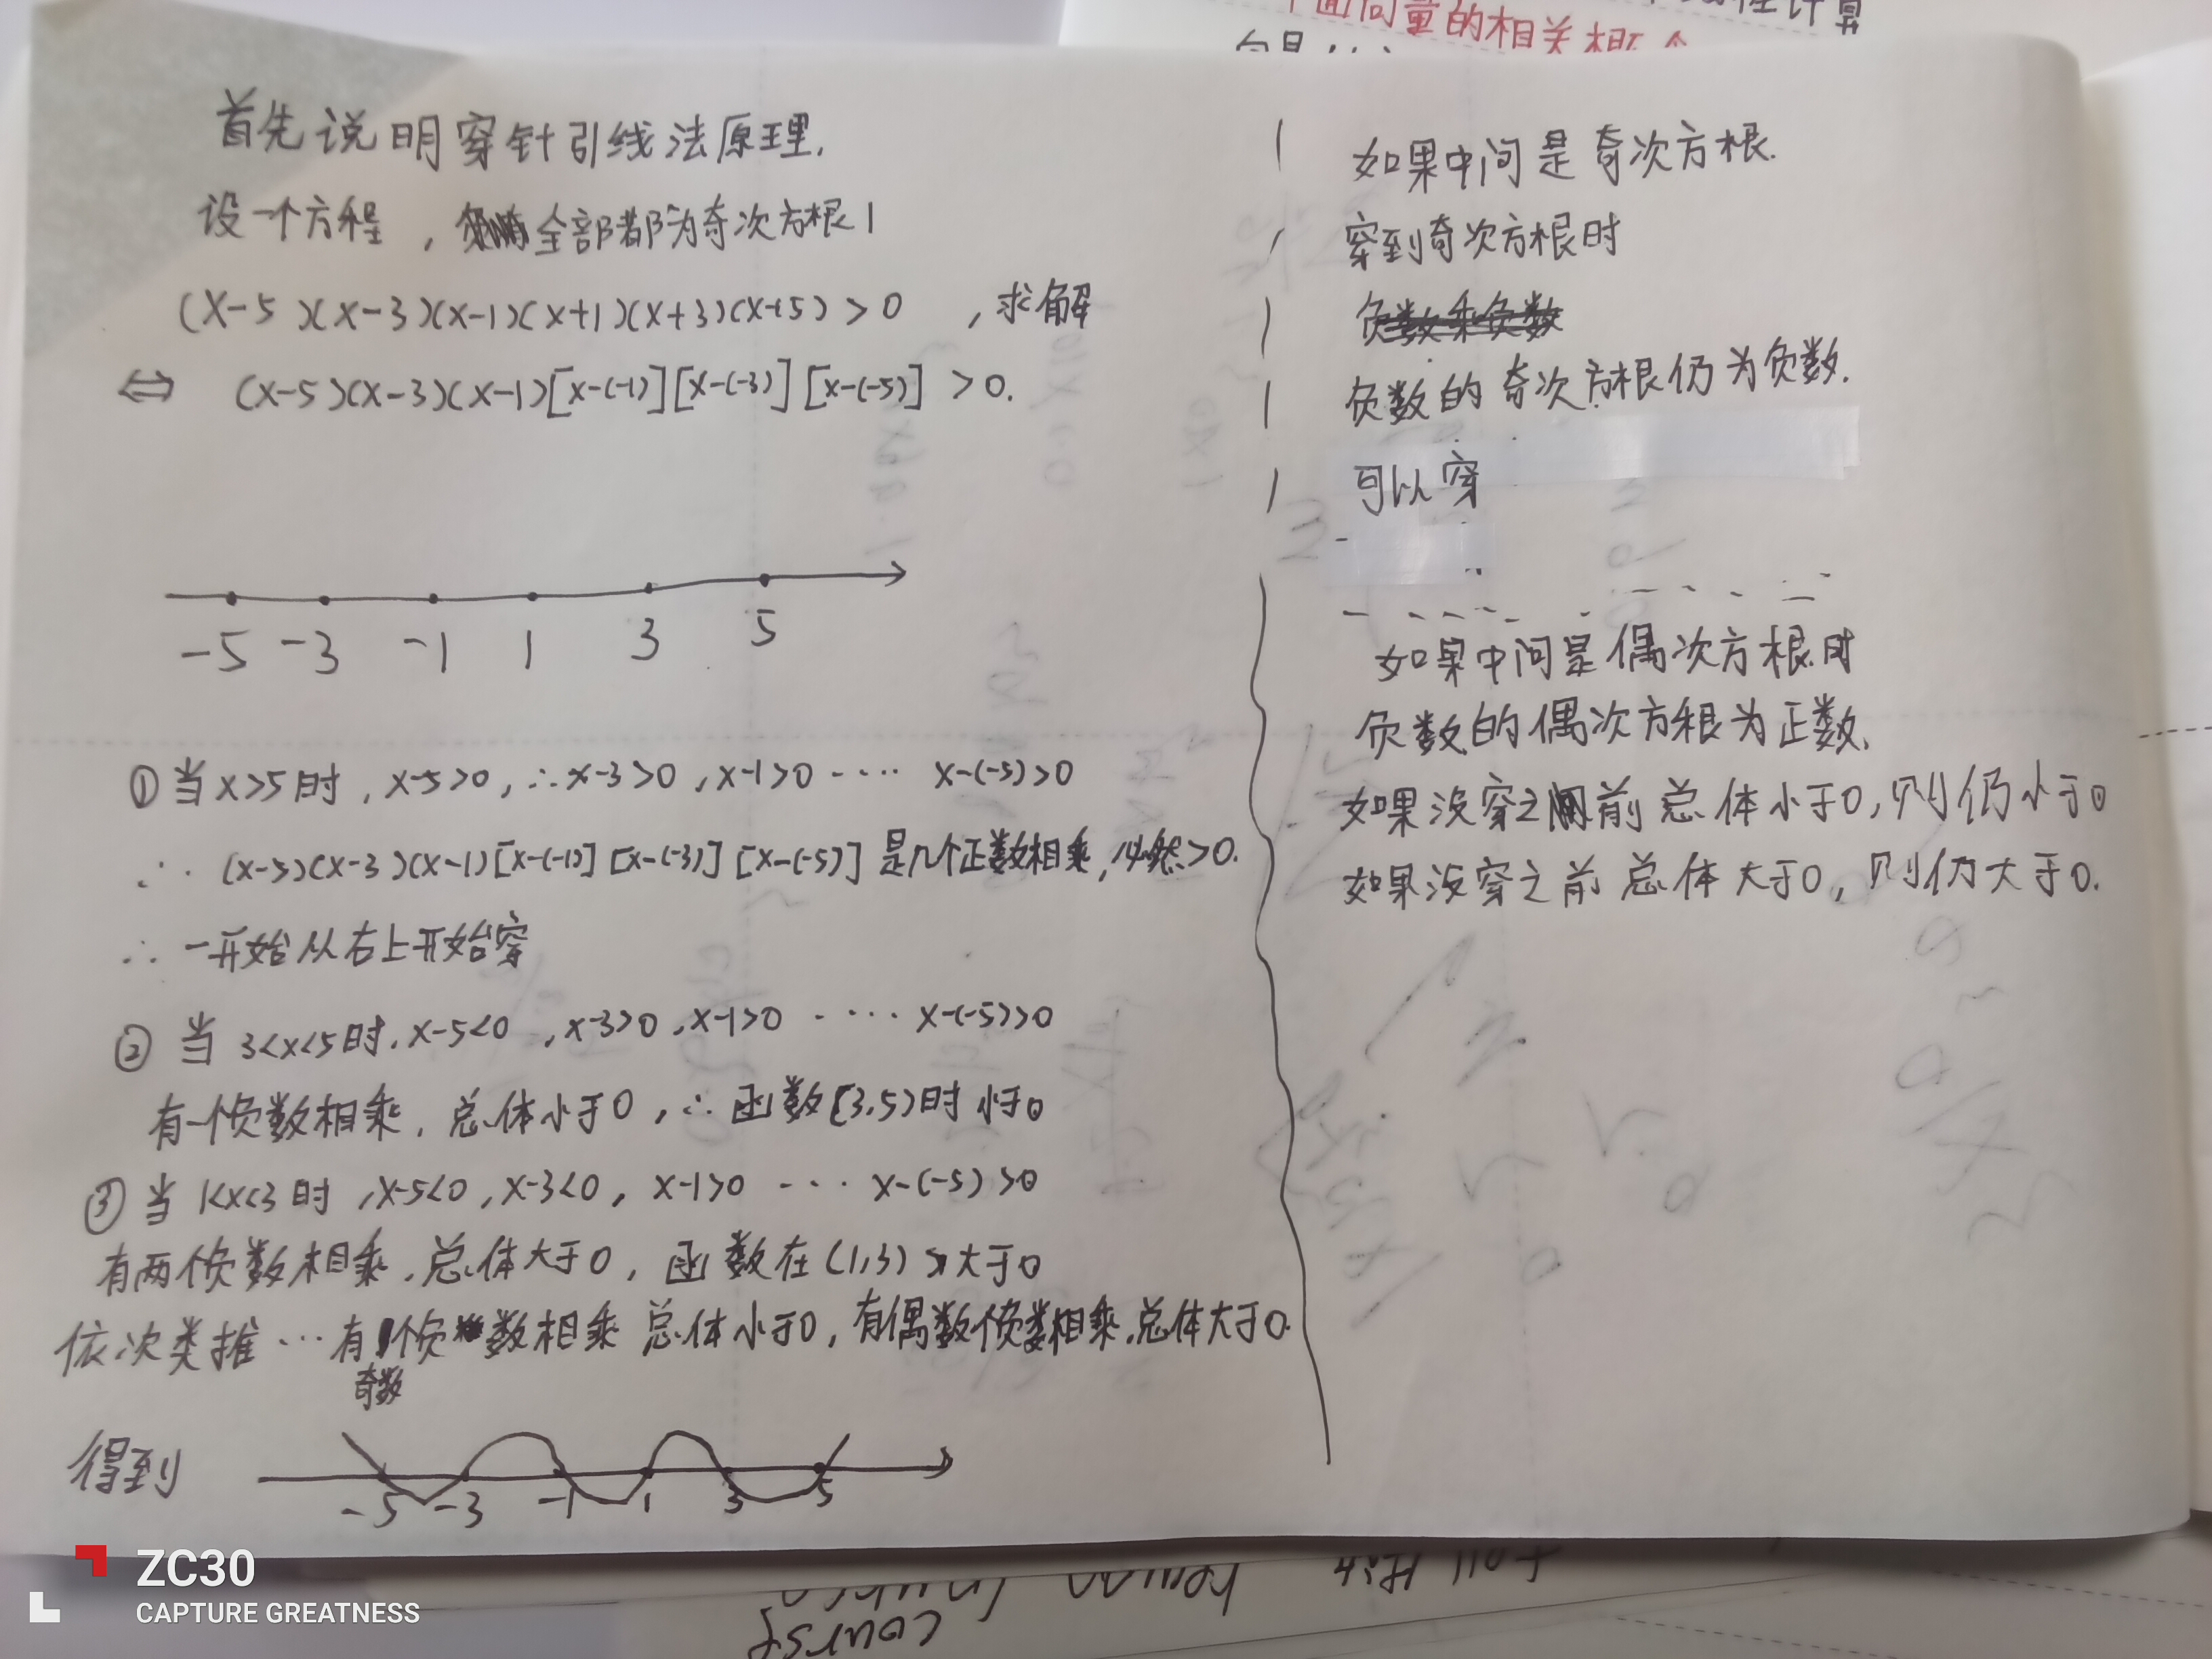 平面向量的相关概念
首先说明穿针引线法原理.
设一个方程，全部都为奇次方根1
(x-5)(x-3)(x-1)(x+1)(x+3)(x+5)>0 ,求解
⇔ (x-5)(x-3)(x-1)[x-(-1)][x-(-3)][x-(-5)]>0.
-5 -3 -1 1 3 5
①当x>5时,x-5>0,∴x-3>0,x-1>0……x-(-5)>0
∴(x-5)(x-3)(x-1)[x-(-1)][x-(-3)][x-(-5)]是几个正数相乘,必然>0.
∴一开始从右上开始穿
②当3<x<5时.x-5<0,x-3>0,x-1>0……x-(-5)>0
有一个负数相乘.总体小于0,∴函数[3,5)时小于0
③当1<x<3时,x-5<0,x-3<0,x-1>0…x-(-5)>0
有两个负数相乘.总体大于0,函数在(1,3)大于0
依次类推…有奇数个负数相乘总体小于0,有偶数个负数相乘.总体大于0.
得到
-5 -3 -1 1 3 5
如果中间是奇次方根.
穿到奇次方根时
负数乘负数
负数的奇次方根仍为负数.
可以穿
如果中间是偶次方根时
负数的偶次方根为正数.
如果没穿之前总体小于0,则仍小于0
如果没穿之前总体大于0,则仍大于0.
ZC30
CAPTURE GREATNESS
course